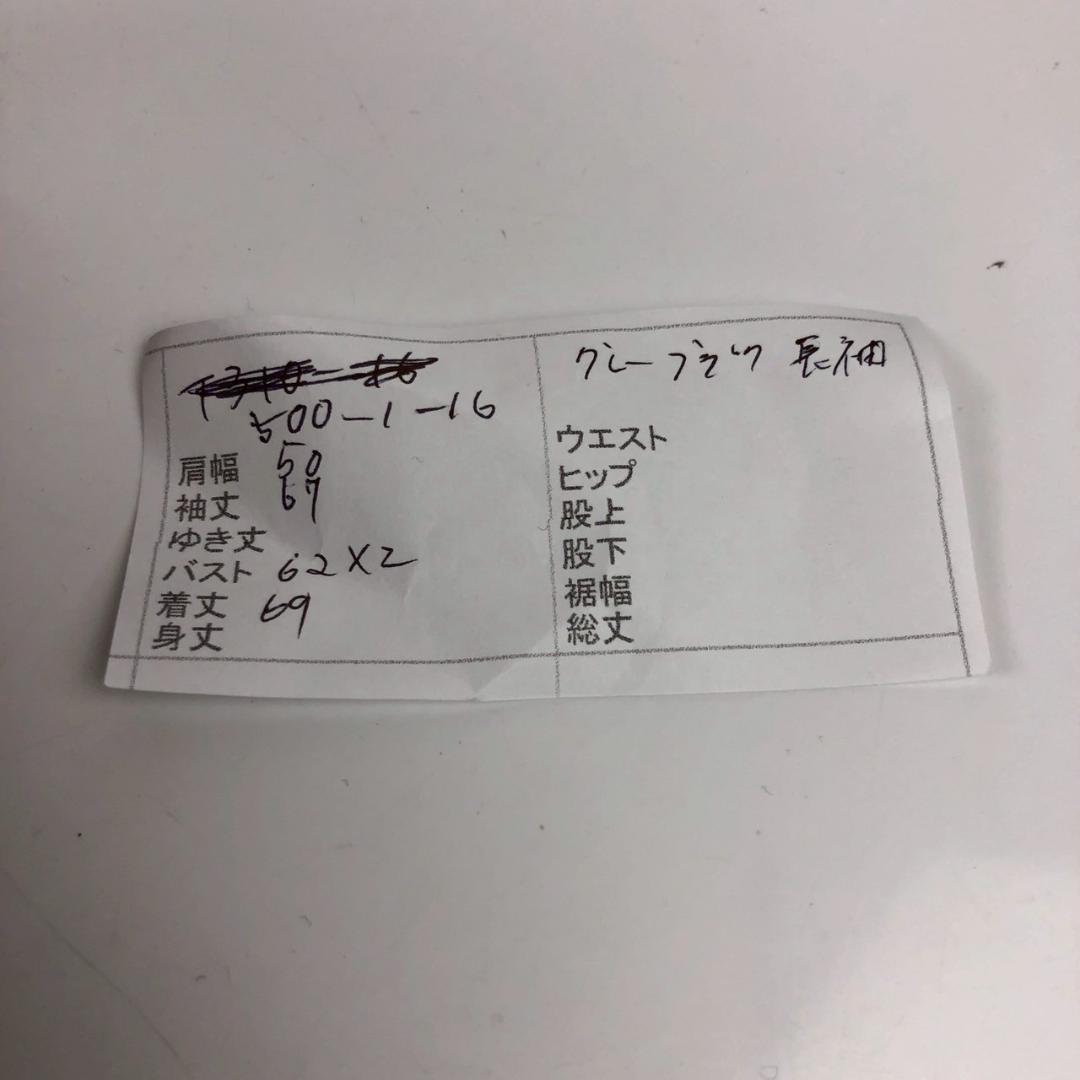 500-1-16
肩幅 50
袖丈 67
ゆき丈
バスト 62×2
着丈 69
身丈
グレー ブラック 長袖
ウエスト
ヒップ
股上
股下
裾幅
総丈